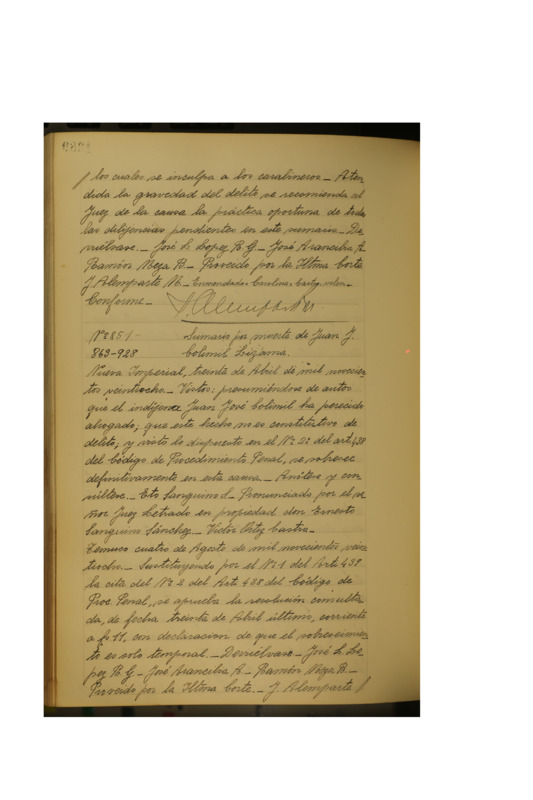 los cuales se inculpa a los carabineros_ Aten
dida la gravedad del delito se recomienda al
Juez de la causa la práctica oportuna de todas
las dilijencias pendientes en este sumario_ De
vuélvase._ José L. Lopez R. G_ José Arancibia A.
Ramón Meza R._ Proveido por la Iltma Corte
J. Alemparte M._ Enmendado: Carolina: Castig.
Conforme_
Nº 2851-
863-928
Sumario por muerte de Juan J.
Colimil Lizama.
Nueva Imperial, treinta de Abril de mil novecien
tos veintiocho._ Vistos: presumiéndose de autos
que el indíjena Juan José Colimil ha perecido
ahogado; que este hecho no es constitutivo de
delito; y visto lo dispuesto en el Nº 2º del art 438
del Código de Procedimiento Penal, se sobresee
definitivamente en esta causa._ Anótese y con
súltese._ Eto Sanguino S._ Pronunciado por el se
ñor Juez Letrado en propiedad don Ernesto
Sanguino Sánchez_ Victor Ortiz Castro_
Temuco cuatro de Agosto de mil novecientos vein
tiocho._ Sustituyendo por el Nº 1 del Art 439
la cita del Nº 2 del Art 438 del Código de
Proc. Penal, se aprueba la resolución consulta
da, de fecha treinta de Abril último, corriente
a fs 11, con declaracion de que el sobreseimien
to es solo temporal._ Devuélvase_ José L. Lo
pez R. G_ José Arancibia A._ Ramón Meza R._
Proveido por la Iltma Corte._ J. Alemparte